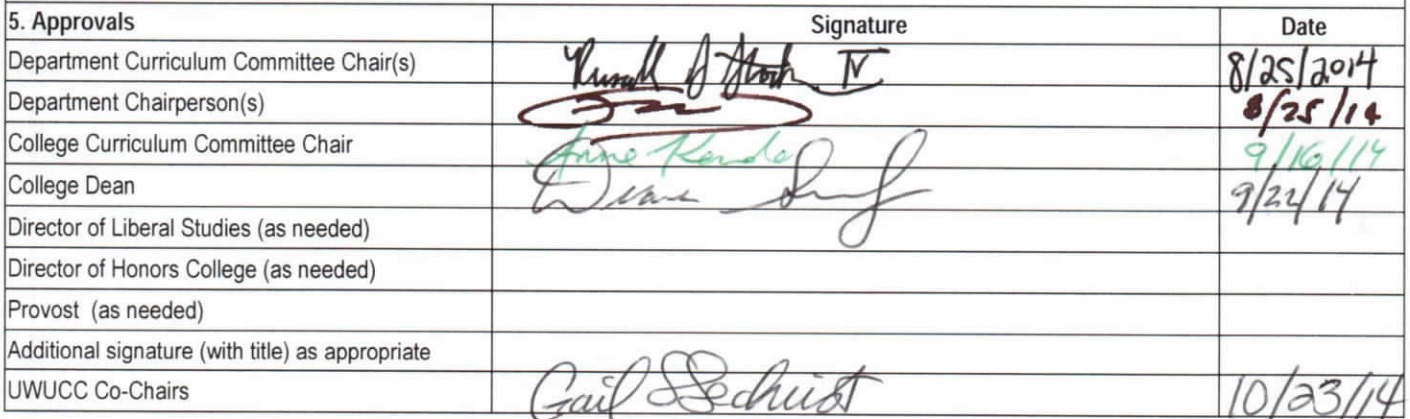 5. Approvals Signature Date
Department Curriculum Committee Chair(s) IV 8/25/2014
Department Chairperson(s) 8/25/14
College Curriculum Committee Chair Anne 9/16/14
College Dean 9/22/14
Director of Liberal Studies (as needed)
Director of Honors College (as needed)
Provost (as needed)
Additional signature (with title) as appropriate
UWUCC Co-Chairs Gail SSechrist 10/23/14